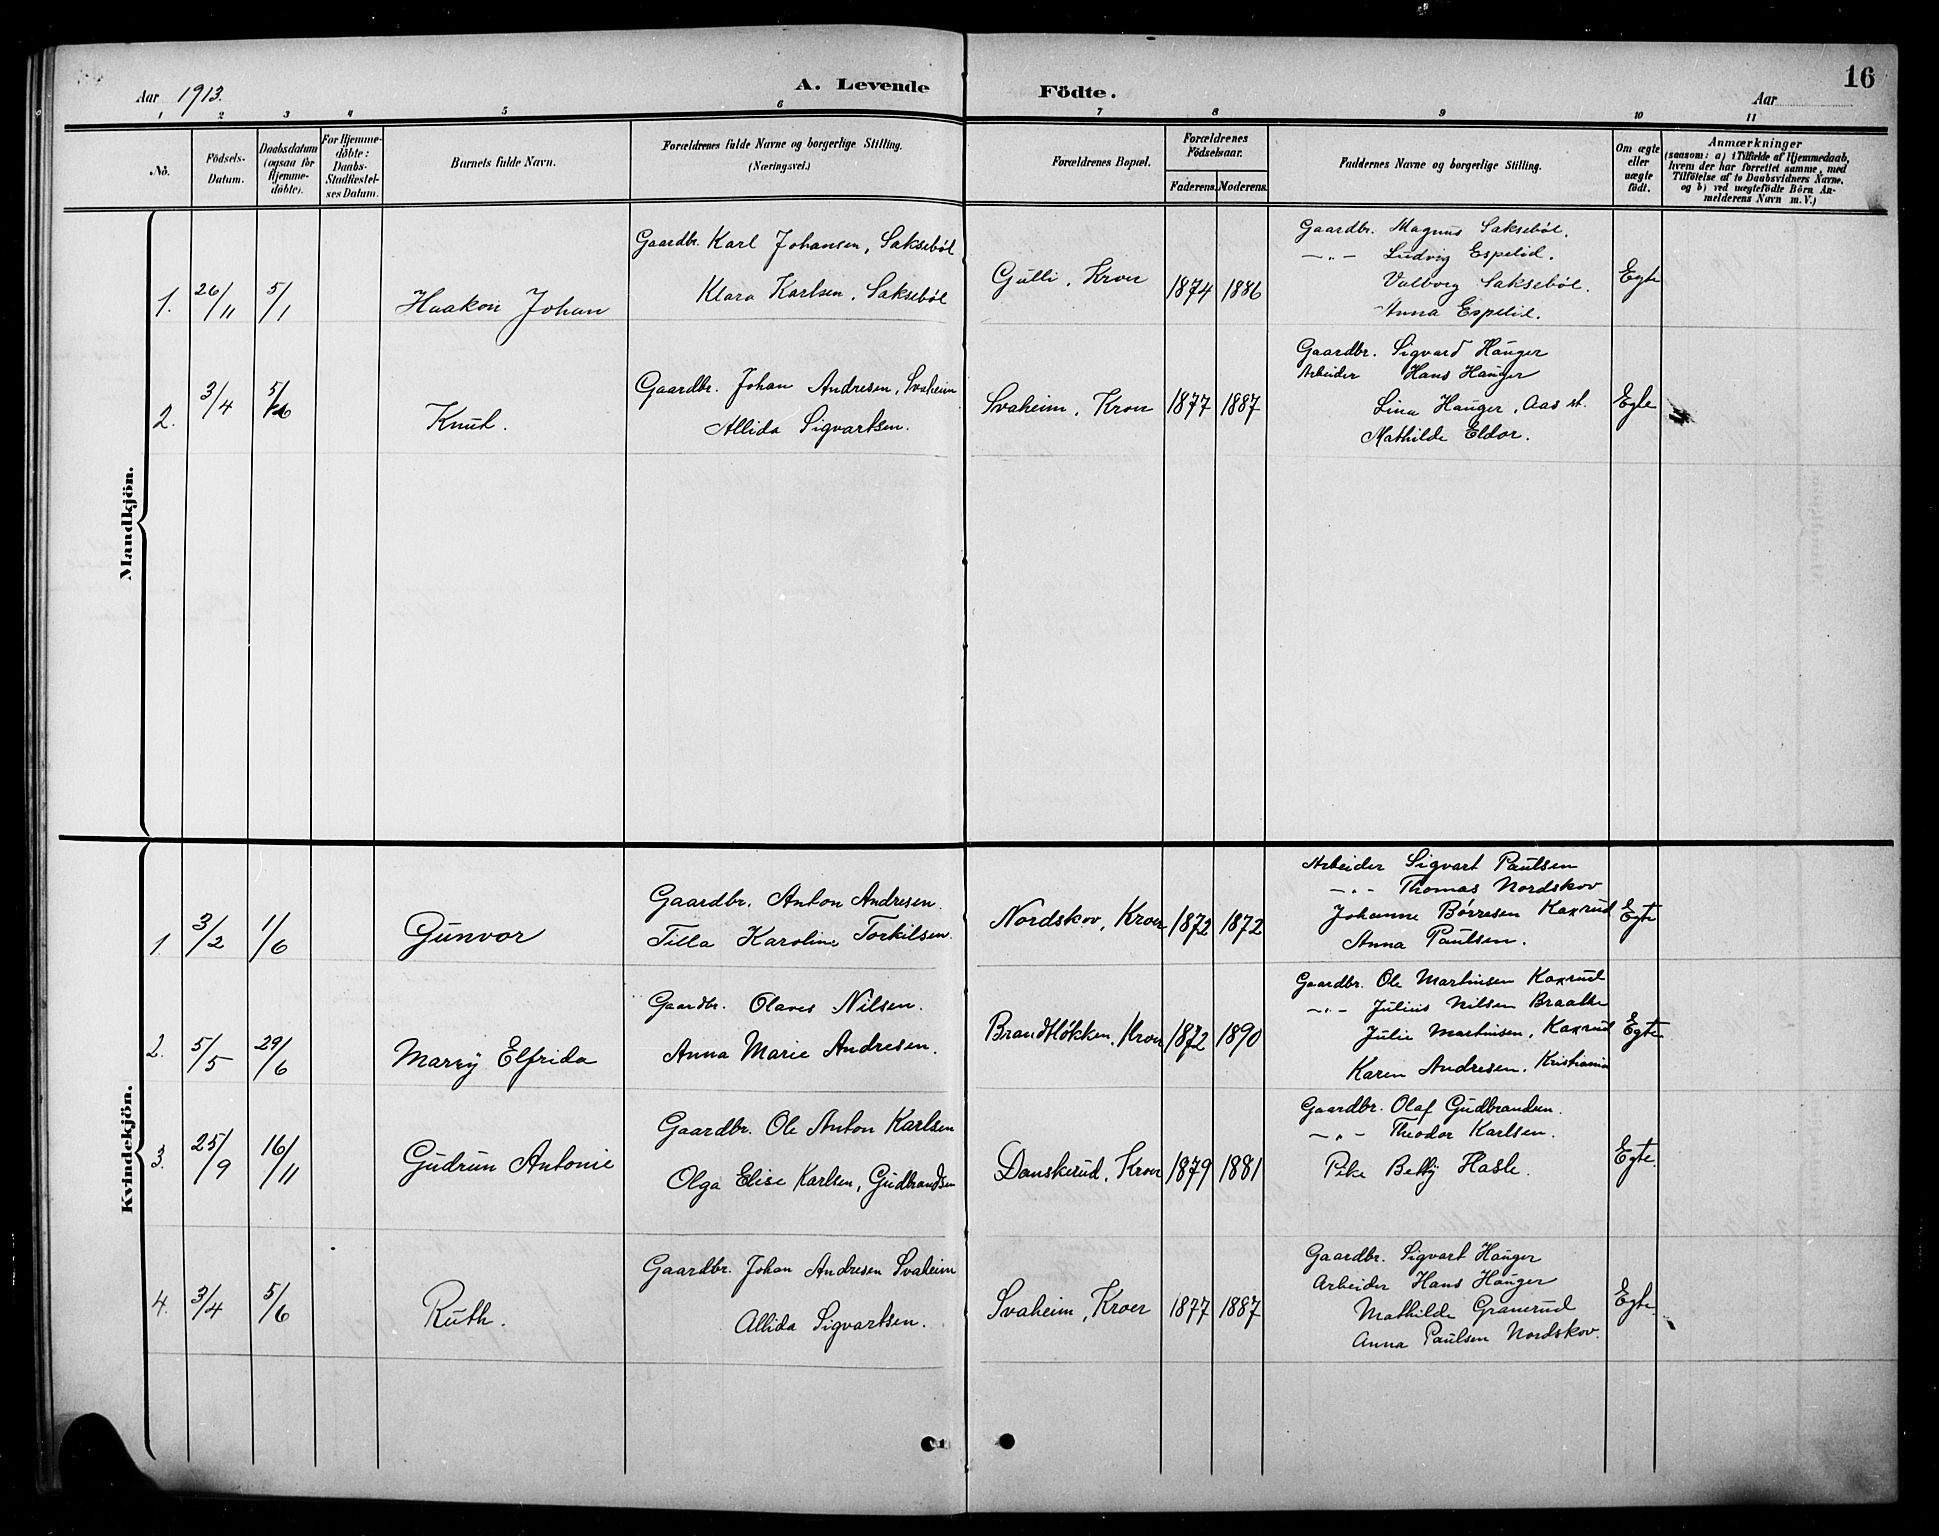 Aar 1913.
A. Levende Födte.
16
Aar
1 2 3 4 5 6 7 8 9 10 11
No.
Födsels-Datum.
Daabsdatum (ogsaa for Hjemme-döbte).
For Hjemme-döbte: Daabs-Stadfæstel-ses Datum.
Barnets fulde Navn.
Forældrenes fulde Navne og borgerlige Stilling. (Næringsvei.)
Forældrenes Bopæl.
Forældrenes Födselsaar.
Faderens. Moderens.
Faddernes Navne og borgerlige Stilling.
Om ægte eller uægte födt.
Anmærkninger
(saasom: a) i Tilfælde af Hjemmedaab, hvem der har forrettet samme, med Tilföielse af to Daabsvidners Navne, og b) ved uægtefödte Börn An-melderens Navn m.V.)
Mandkjön.
1. 26/11 5/1 Haakon Johan
Gaardbr. Karl Johansen, Sakseböl
Klara Karlsen, Sakseböl
Gulli, Kroer 1874 1886
Gaardbr. Magnus Saksebøl.
-"- Ludvig Espelid.
Valborg Saksebøl.
Anna Espelid.
Egte
2. 3/4 5/6 Knut.
Gaardbr. Johan Andresen, Svaheim
Allida Sigvartsen.
Svaheim, Kroer 1877 1887
Gaardbr. Sigvard Hauger
Arbeider Hans Hauger
Lina Hauger, Aas st.
Mathilde Eldor.
Egte
Kvindekjön.
1. 3/2 1/6 Gunvor
Gaardbr. Anton Andresen.
Tilla Karoline Torkilsen.
Nordskov, Kroer 1872 1872
Arbeider Sigvart Paulsen
-"- Thomas Nordskov
Johanne Børresen Kaxrud
Anna Paulsen.
Egte
2. 5/5 29/6 Marry Elfrida
Gaardbr. Olaves Nilsen.
Anna Marie Andresen.
Brandtløkken, Kroer 1872 1890
Gaardbr. Ole Martinsen Kaxrud
-"- Julius Nilsen Braatte
Julie Martinsen, Kaxrud
Karen Andresen, Kristiania
Egte
3. 25/9 16/11 Gudrun Antonie
Gaardbr. Ole Anton Karlsen
Olga Elise Karlsen, Gudbrandsen
Danskerud, Kroer 1879 1881
Gaardbr. Olaf Gudbrandsen.
-"- Theodor Karlsen.
Pike Betty Hasle.
Egte.
4. 3/4 5/6 Ruth.
Gaardbr. Johan Andresen Svaheim
Allida Sigvartsen.
Svaheim, Kroer 1877 1887
Gaardbr. Sigvart Hauger
Arbeider Hans Hauger
Mathilde Granerud
Anna Paulsen Nordskov.
Egte.